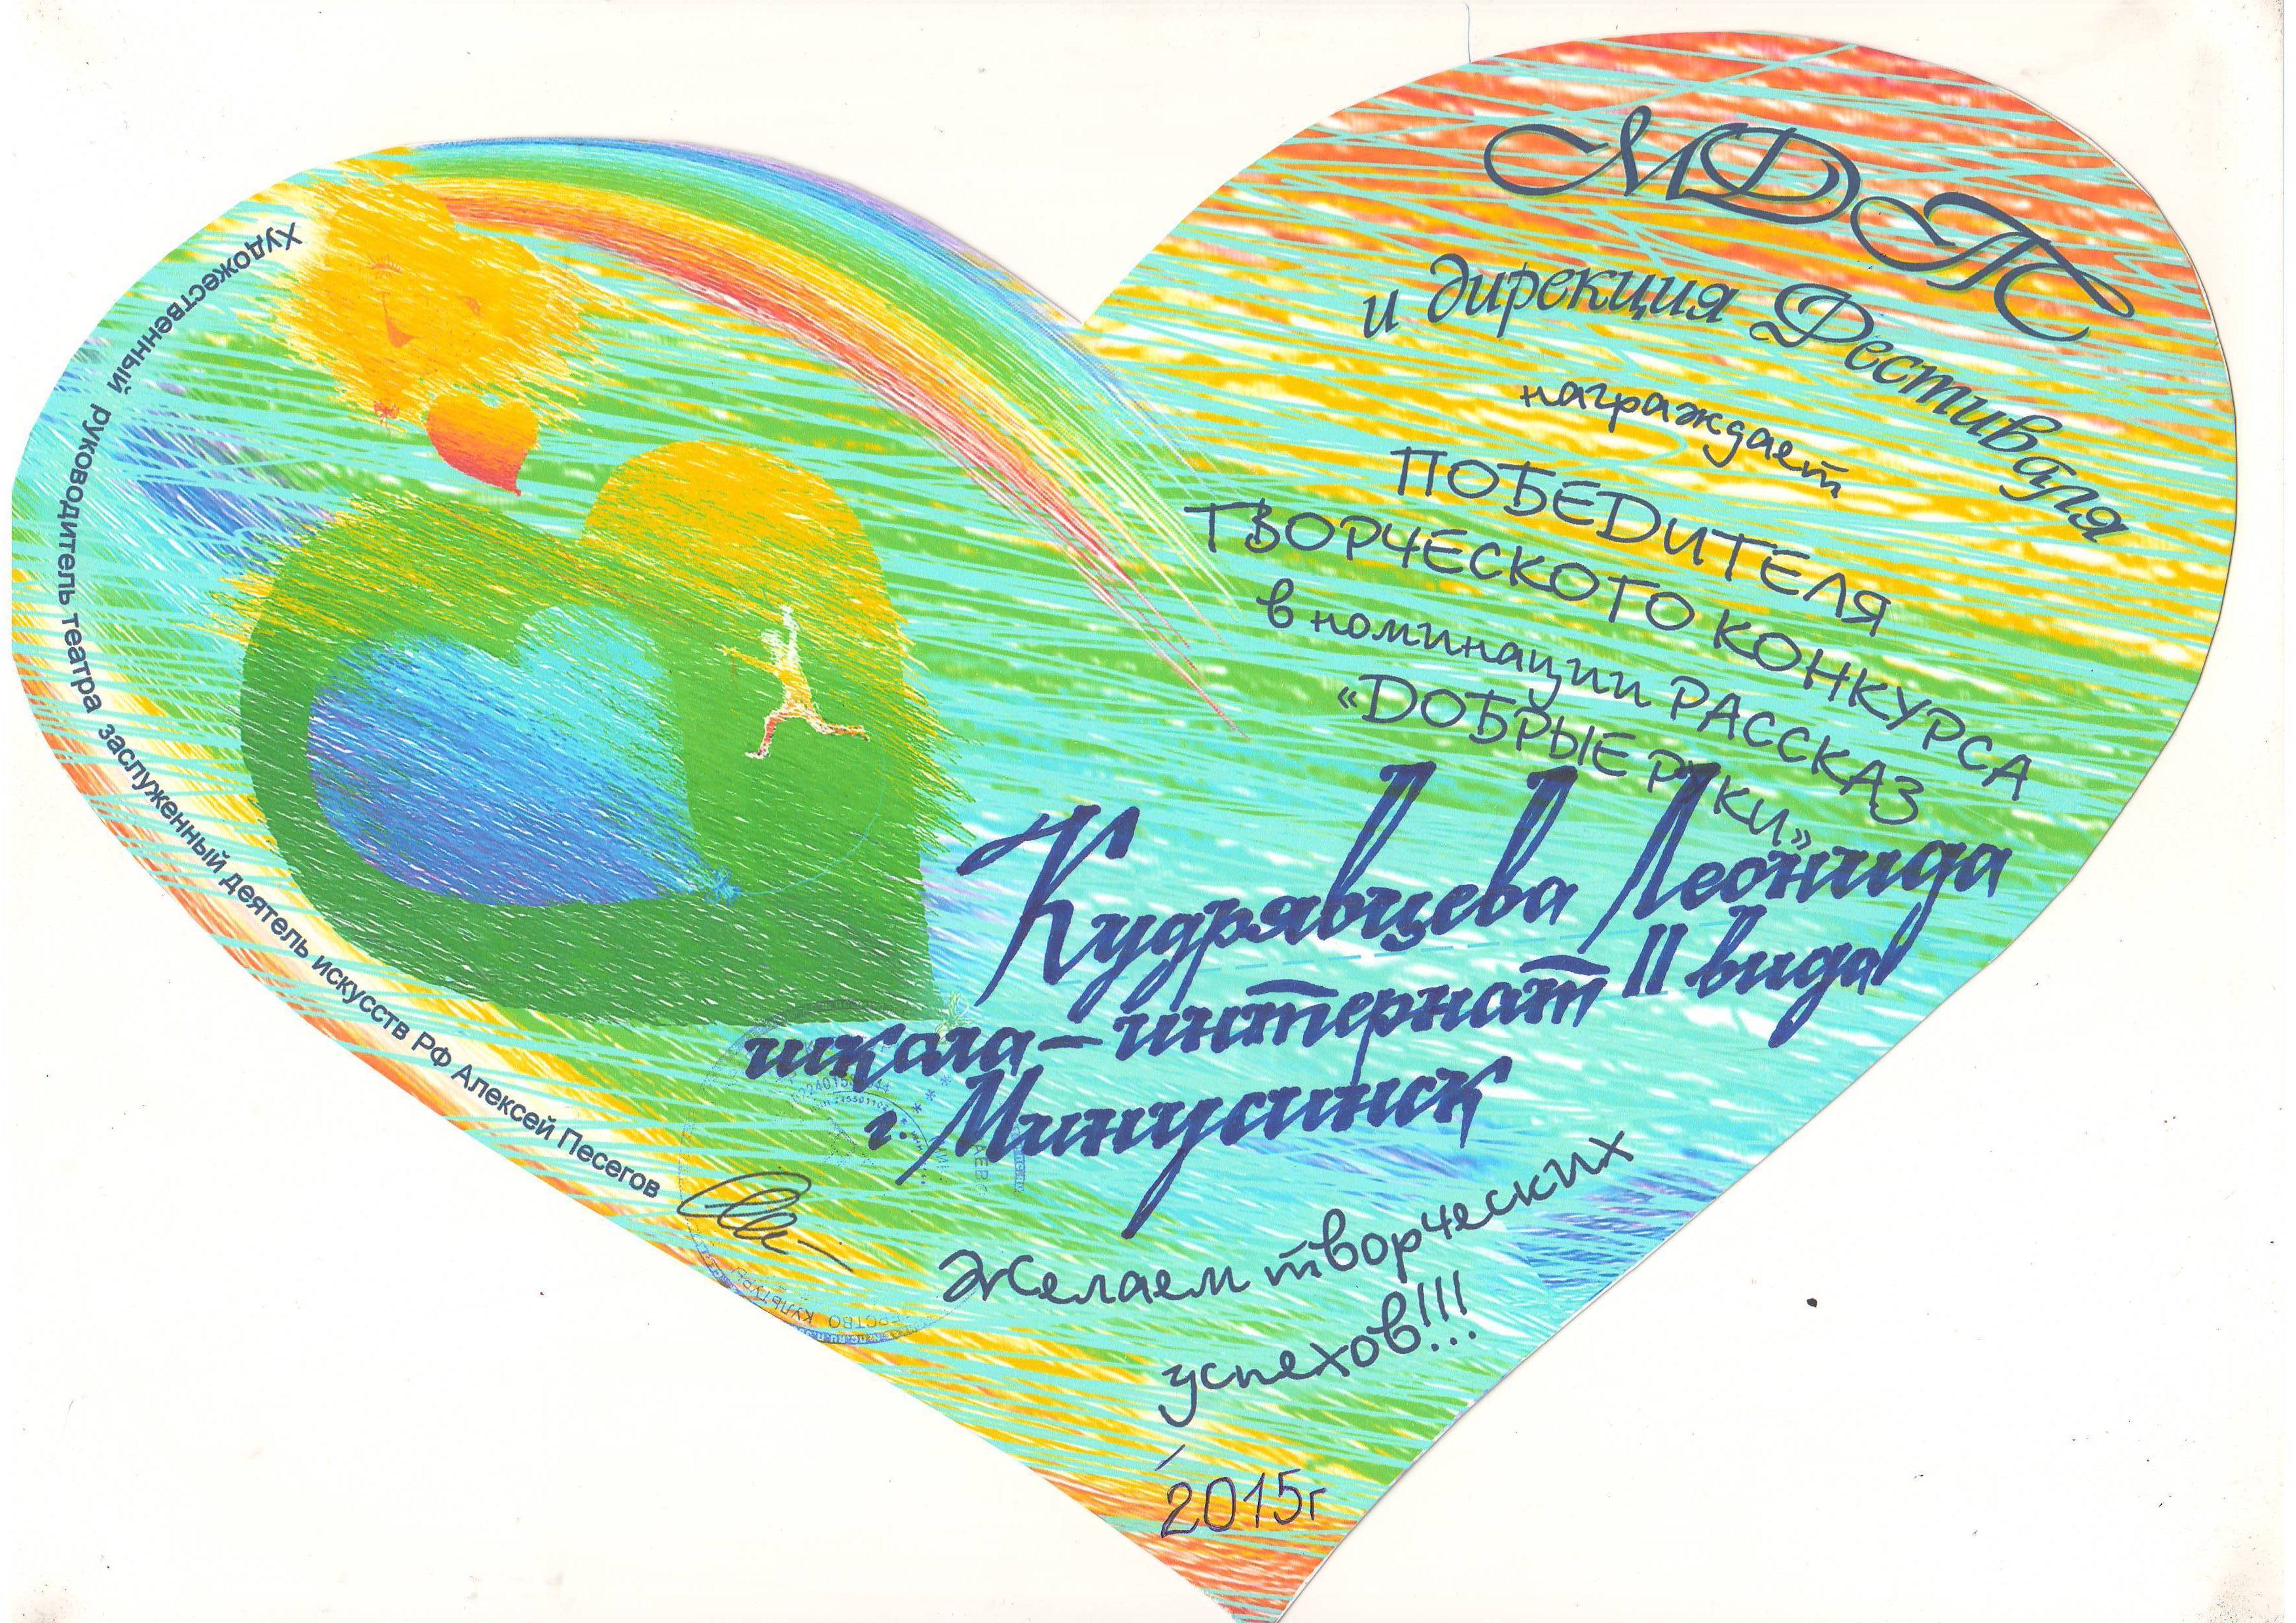 МДТ
и дирекция Фестиваля
награждает
ПОБЕДИТЕЛЯ
ТВОРЧЕСКОГО КОНКУРСА
в номинации РАССКАЗ
«ДОБРЫЕ РУКИ»
Кудрявцева Леонида
школа-интернат II вида
г. Минусинск
Желаем творческих
успехов!!!
2015г
Художественный руководитель театра заслуженный деятель искусств РФ Алексей Песегов
КУЛЬТУРЫ